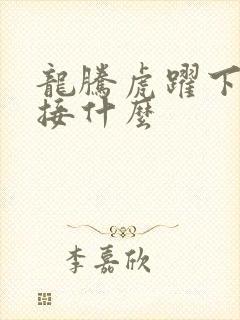 龍騰虎躍下
接什麼
李嘉欣